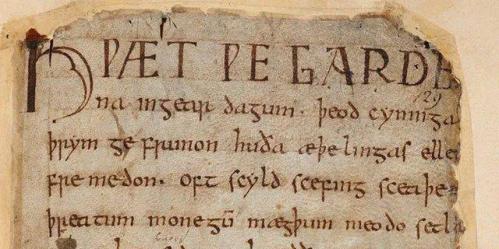 HǷÆT ǷE GARDE
na in gear dagum. þeod cyninga
þrym ge frunon huða æþelingas elle
fremedon. oft scyld scefing sceaþe
þreatum monegū mægþum meodo setl